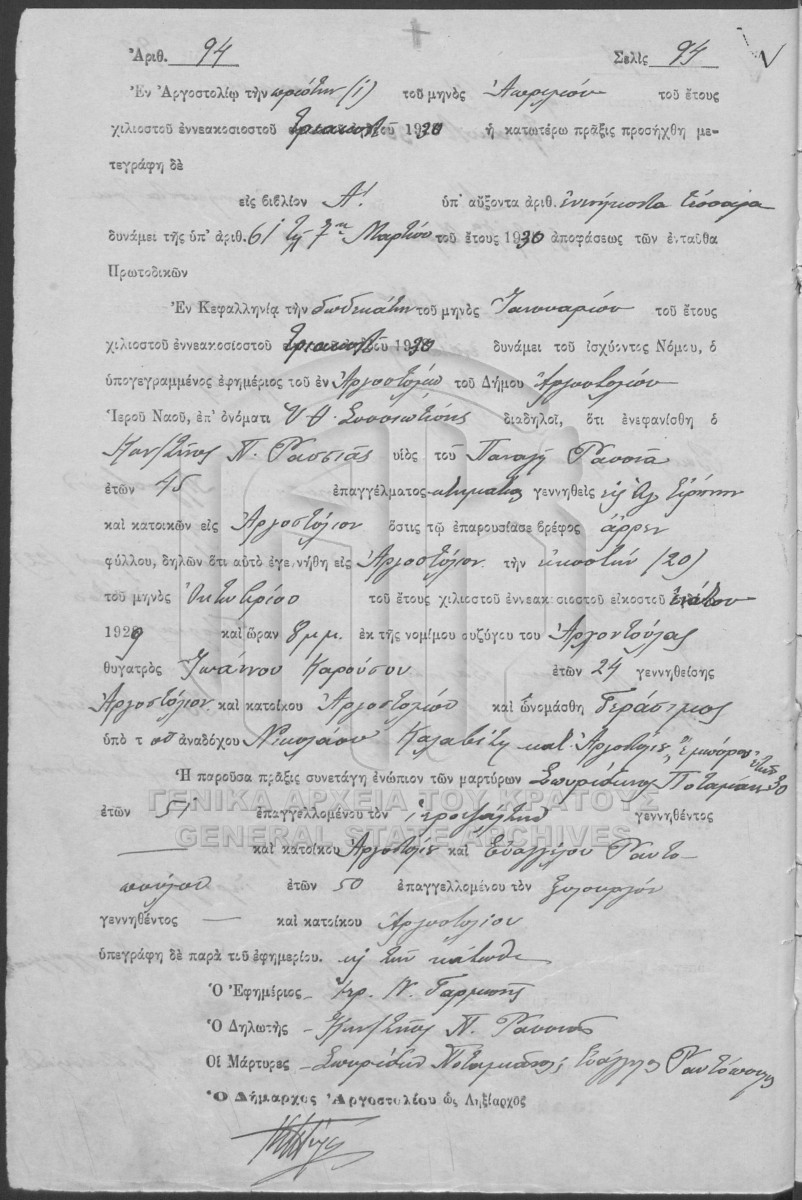 Ἀριθ. 94 Σελὶς 94
Ἐν Ἀργοστολίῳ τὴν πρώτην (1) τοῦ μηνὸς Ἀπριλίου τοῦ ἔτους
χιλιοστοῦ ἐννεακοσιοστοῦ τριακοστοῦ 1930 ἡ κατωτέρω πρᾶξις προσήχθη με-
τεγράφη δὲ
εἰς βιβλίον Α! ὑπ' αὔξοντα ἀριθ. ἐνενήκοντα τέσσαρα
δυνάμει τῆς ὑπ' ἀριθ. 61 τῆς 7ης Μαρτίου τοῦ ἔτους 1930 ἀποφάσεως τῶν ἐνταῦθα
Πρωτοδικῶν
Ἐν Κεφαλληνίᾳ τὴν δωδεκάτην τοῦ μηνὸς Ἰανουαρίου τοῦ ἔτους
χιλιοστοῦ ἐννεακοσίοστοῦ τριακοστοῦ 1930 δυνάμει τοῦ ἰσχύοντος Νόμου, ὁ
ὑπογεγραμμένος ἐφημέριος τοῦ ἐν Ἀργοστολίῳ τοῦ Δήμου Ἀργοστολίου
Ἱεροῦ Ναοῦ, ἐπ' ὀνόματι Υ.Θ. Σισσιωτίσης διαδηλοῖ, ὅτι ἐνεφανίσθη ὁ
Κων/τῖνος Π. Ρασσιᾶς υἱὸς τοῦ Παναγῆ Ρασσιᾶ
ἐτῶν 45 ἐπαγγέλματος κτηματίας γεννηθεὶς εἰς Ἁγ. Εἰρήνην
καὶ κατοικῶν εἰς Ἀργοστόλιον ὅστις τῷ ἐπαρουσίασε βρέφος ἄρρεν
φύλλου, δηλῶν ὅτι αὐτὸ ἐγεννήθη εἰς Ἀργοστόλιον τὴν εἰκοστήν (20)
τοῦ μηνὸς Ὀκτωβρίου τοῦ ἔτους χιλιοστοῦ ἐννεακοσιοστοῦ εἰκοστοῦ ἐνάτου
1929 καὶ ὥραν 8 μ.μ. ἐκ τῆς νομίμου συζύγου του Ἀρχοντούλας
θυγατρὸς Ἰωάννου Καρούσου ἐτῶν 24 γεννηθείσης
Ἀργοστόλιον καὶ κατοίκου Ἀργοστολίου καὶ ὠνομάσθη Γεράσιμος
ὑπὸ τοῦ ἀναδόχου Νικολάου Καλαβίτη κατ. Ἀργοστολίου, Ἐμπόρου ἐτῶν 30
Ἡ παροῦσα πρᾶξις συνετάγη ἐνώπιον τῶν μαρτύρων Σπυρίδωνος Ποταμιάνου
ἐτῶν 51 ἐπαγγελλομένου τὸν ἱεροψάλτην γεννηθέντος
— καὶ κατοίκου Ἀργοστολίου καὶ Εὐαγγέλου Ραυτο-
πούλου ἐτῶν 50 ἐπαγγελλομένου τὸν ξυλουργόν
γεννηθέντος — καὶ κατοίκου Ἀργοστολίου
ὑπεγράφη δὲ παρὰ τοῦ ἐφημερίου.
Ὁ Ἐφημέριος Ν.
Ὁ Δηλωτὴς Κων/τῖνος Π. Ρασσιᾶς
Οἱ Μάρτυρες Σπυρίδων Ποταμιάνος, Εὐάγγελος Ραυτόπουλος
Ὁ Δήμαρχος Ἀργοστολίου ὡς Ληξίαρχος
ΓΕΝΙΚΑ ΑΡΧΕΙΑ ΤΟΥ ΚΡΑΤΟΥΣ
GENERAL STATE ARCHIVES